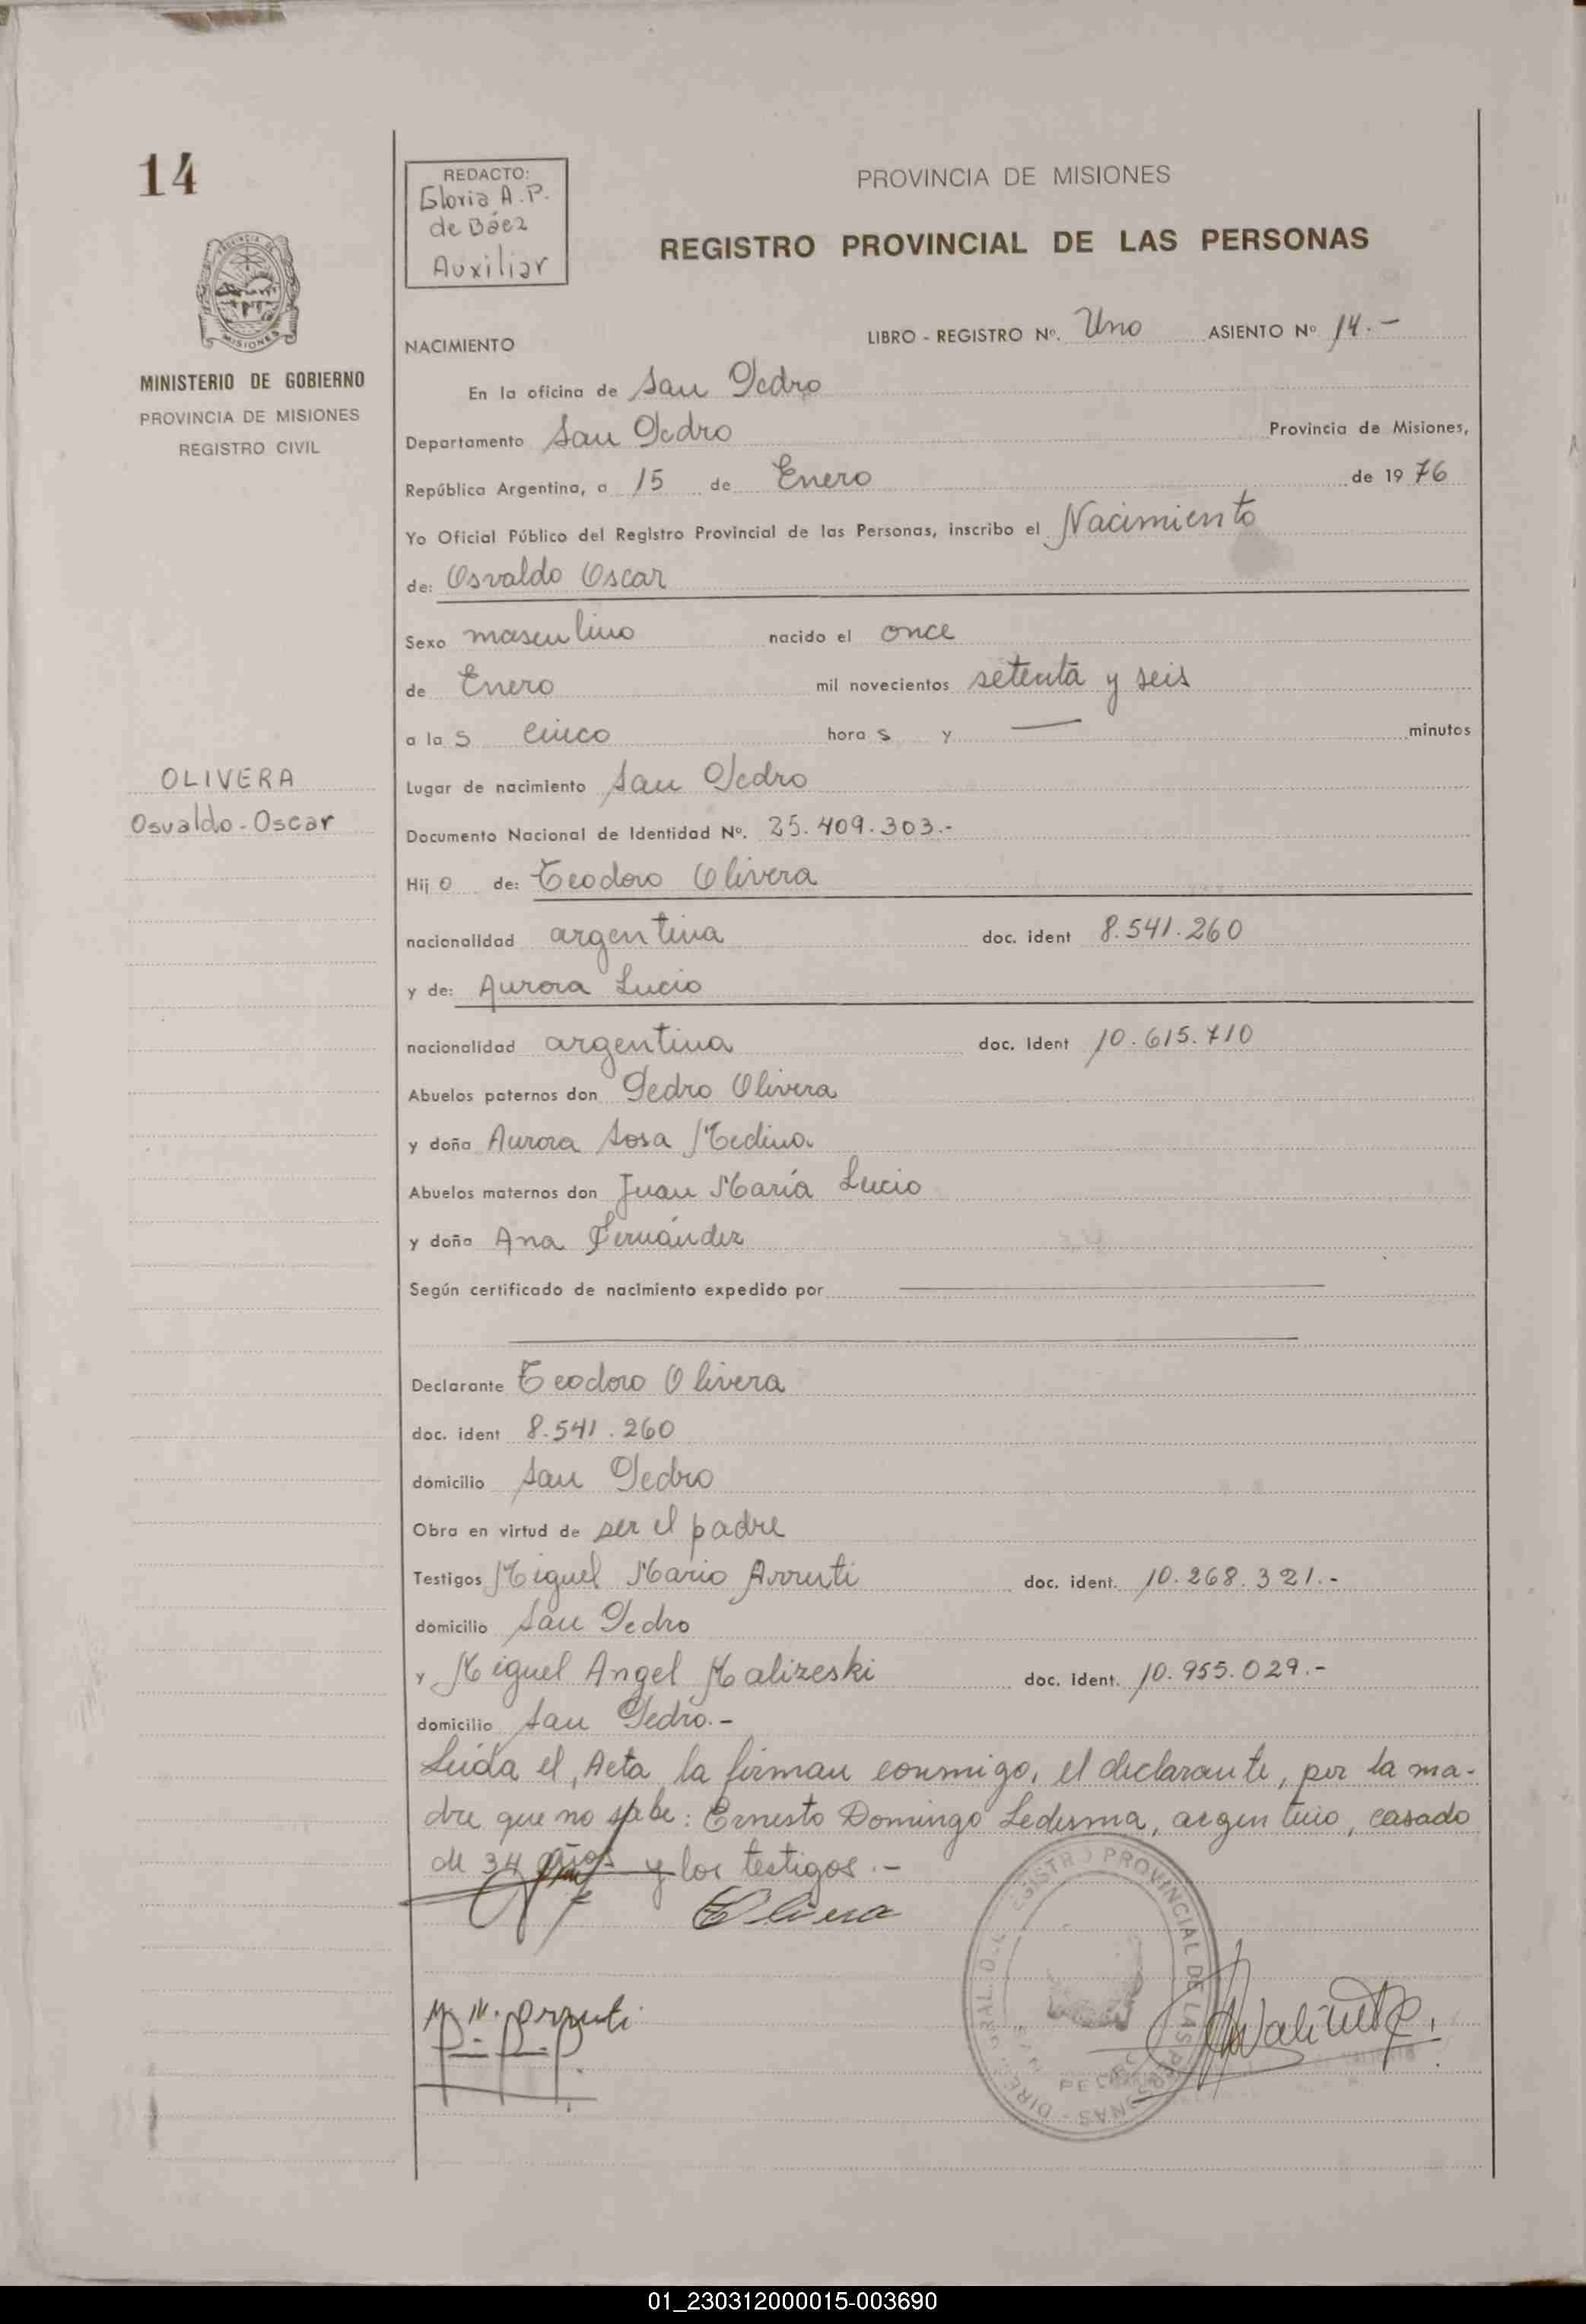 14
REDACTO:
Gloria A.P.
de Báez
Auxiliar
PROVINCIA DE MISIONES
REGISTRO PROVINCIAL DE LAS PERSONAS
MISIONES
MINISTERIO DE GOBIERNO
PROVINCIA DE MISIONES
REGISTRO CIVIL
NACIMIENTO
LIBRO - REGISTRO Nº. Uno ASIENTO Nº 14.-
En la oficina de San Pedro
Departamento San Pedro Provincia de Misiones,
República Argentina, a 15 de Enero de 1976
Yo Oficial Público del Registro Provincial de las Personas, inscribo el Nacimiento
de: Osvaldo Oscar
Sexo masculino nacido el once
de Enero mil novecientos setenta y seis
a las cinco horas y — minutos
OLIVERA
Osvaldo-Oscar
Lugar de nacimiento San Pedro
Documento Nacional de Identidad Nº. 25.409.303.-
Hijo de: Teodoro Olivera
nacionalidad argentina doc. ident 8.541.260
y de: Aurora Lucio
nacionalidad argentina doc. ident 10.615.710
Abuelos paternos don Pedro Olivera
y doña Aurora Sosa Medina
Abuelos maternos don Juan María Lucio
y doña Ana Fernández
Según certificado de nacimiento expedido por
Declarante Teodoro Olivera
doc. ident 8.541.260
domicilio San Pedro
Obra en virtud de ser el padre
Testigos Miguel Mario Arruti doc. ident. 10.268.321.-
domicilio San Pedro
y Miguel Angel Malizeski doc. ident. 10.955.029.-
domicilio San Pedro.-
Leída el, Acta la firman conmigo, el declarante, por la ma-
dre que no sabe: Ernesto Domingo Ledesma, argentino, casado
de 34 años y los testigos.-
Olivera
M. M. Arruti
REGISTRO PROVINCIAL DE LAS PERSONAS
01_230312000015-003690